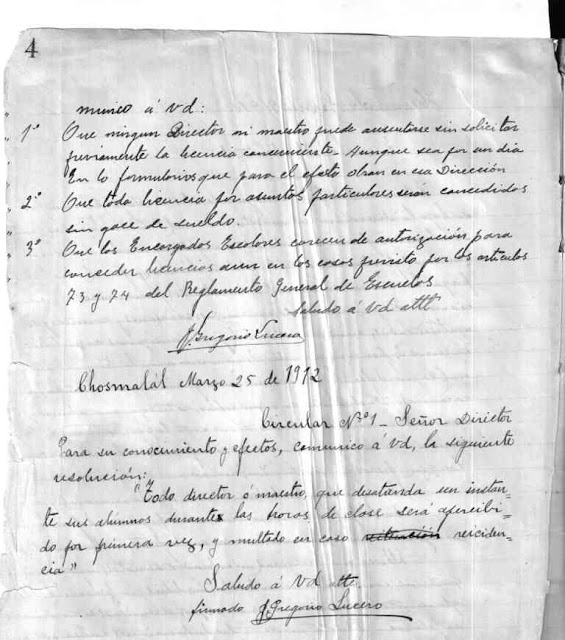 4
munico á Vd:
1º Que ningun Director ni maestro puede ausentarse sin solicitar
previamente la licencia concerniente. Aunque sea por un dia
En lo formularios que para el efecto obran en esa Dirección
2º Que toda licencia por asuntos particulares serán concedidas
sin goce de sueldo.
3º Que los Encargados Escolares carecen de autorización para
conceder licencias aun en los casos previsto por los articulos
73 y 74 del Reglamento General de Escuelas
Saludo á Vd attt
J. Gregorio Lucero
Chosmalál Marzo 25 de 1912
Circular Nº1_ Señor Director
Para su conocimiento y efectos, comunico á Vd, la siguiente
resolución:
"Todo director ó maestro, que desatienda un instan-
te sus alumnos durante las horas de clase será apercibi-
do por primera vez, y multado en caso reiciden-
cia"
Saludo á Vd atte
firmado J. Gregorio Lucero